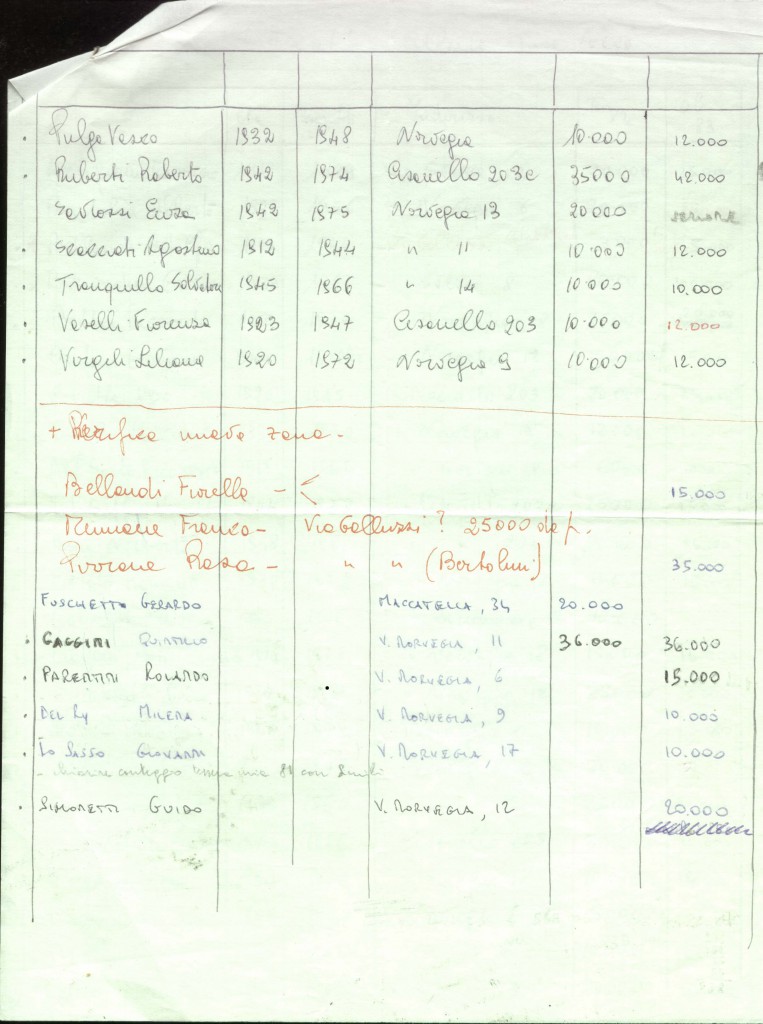 Pulga Vasco 1932 1948 Norvegia 10.000 12.000
Ruberti Roberto 1942 1974 Cisanello 203c 35000 42.000
Saviozzi Enza 1942 1975 Norvegia 13 20000
Scacciati Agostino 1912 1944 " 11 10.000 12.000
Tranquillo Salvatore 1945 1966 " 14 10.000 10.000
Vaselli Fiorenza 1923 1947 Cisanello 203 10.000 12.000
Vergili Liliana 1920 1972 Norvegia 9 10.000 12.000
+ Verifica nuova zona -
Bellandi Fiorella - < 15.000
Franco - Via Galluzzi ? 25000 da p.
Rosa - " " (Bertolini) 35.000
FUSCHETTO GERARDO MACCATELLA, 34 20.000
GAGGINI QUINTILIO V. NORVEGIA, 11 36.000 36.000
PARENTINI ROLANDO V. NORVEGIA, 6 15.000
DEL RY MILENA V. NORVEGIA, 9 10.000
LO SASSO GIOVANNI V. NORVEGIA, 17 10.000
- chiarire conteggio tessera mia 81 con
SIMONETTI GUIDO V. NORVEGIA, 12 20.000